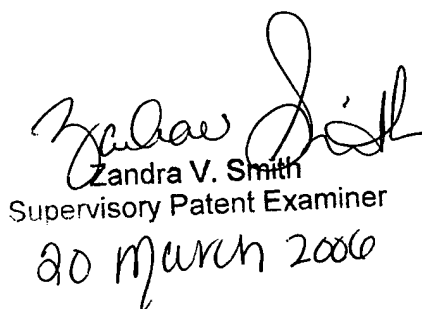 Zandra Smith
Zandra V. Smith
Supervisory Patent Examiner
20 March 2006